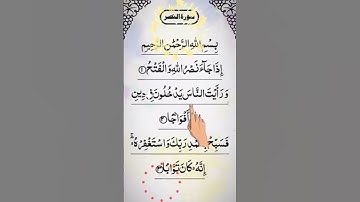 سورة النصر
بِسْمِ اللهِ الرَّحْمٰنِ الرَّحِيْمِ
اِذَا جَآءَ نَصْرُ اللهِ وَالْفَتْحُ ۝۱
وَرَاَيْتَ النَّاسَ يَدْخُلُوْنَ فِيْ دِيْنِ
اَفْوَاجًا ۝۲
فَسَبِّحْ رَبِّكَ وَاسْتَغْفِرْهُ ؕ
اِنَّهٗ كَانَ تَوَّابًا ۝۳